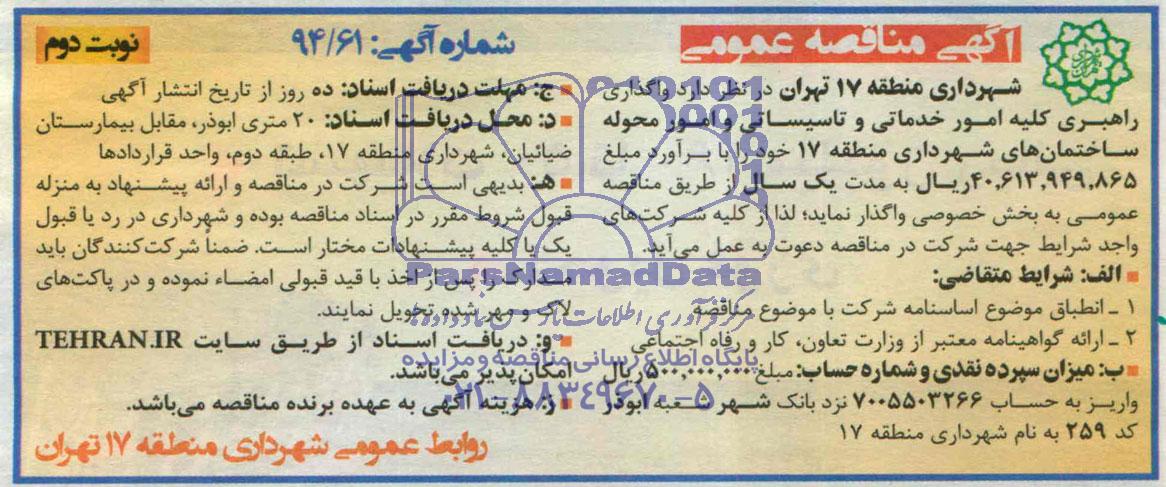 آگهی مناقصه عمومی
شماره آگهی: ۹۴/۶۱
نوبت دوم
شهرداری منطقه ۱۷ تهران در نظر دارد واگذاری
راهبری کلیه امور خدماتی و تاسیساتی و امور محوله
ساختمان‌های شهرداری منطقه ۱۷ خود را با برآورد مبلغ
۴۰,۶۱۳,۹۴۹,۸۶۵ریال به مدت یک سال از طریق مناقصه
عمومی به بخش خصوصی واگذار نماید؛ لذا از کلیه شرکت‌های
واجد شرایط جهت شرکت در مناقصه دعوت به عمل می‌آید.
■ الف: شرایط متقاضی:
۱ ـ انطباق موضوع اساسنامه شرکت با موضوع مناقصه
۲ ـ ارائه گواهینامه معتبر از وزارت تعاون، کار و رفاه اجتماعی
■ ب: میزان سپرده نقدی و شماره حساب: مبلغ ۵۰۰,۰۰۰,۰۰۰ریال
واریز به حساب ۷۰۰۵۵۰۳۲۶۶ نزد بانک شهر شعبه ابوذر
کد ۲۵۹ به نام شهرداری منطقه ۱۷
■ ج: مهلت دریافت اسناد: ده روز از تاریخ انتشار آگهی
■ د: محل دریافت اسناد: ۲۰ متری ابوذر، مقابل بیمارستان
ضیائیان، شهرداری منطقه ۱۷، طبقه دوم، واحد قراردادها
■ هـ: بدیهی است شرکت در مناقصه و ارائه پیشنهاد به منزله
قبول شروط مقرر در اسناد مناقصه بوده و شهرداری در رد یا قبول
یک یا کلیه پیشنهادات مختار است. ضمناً شرکت‌کنندگان باید
مدارک را پس از اخذ با قید قبولی امضاء نموده و در پاکت‌های
لاک و مهر شده تحویل نمایند.
■ و: دریافت اسناد از طریق سایت TEHRAN.IR
امکان‌پذیر می‌باشد.
■ ز: هزینه آگهی به عهده برنده مناقصه می‌باشد.
روابط عمومی شهرداری منطقه ۱۷ تهران
ParsNamadData
پایگاه اطلاع رسانی مناقصه و مزایده
۰۲۱-۸۸۳٤۹۶۷۰-۵